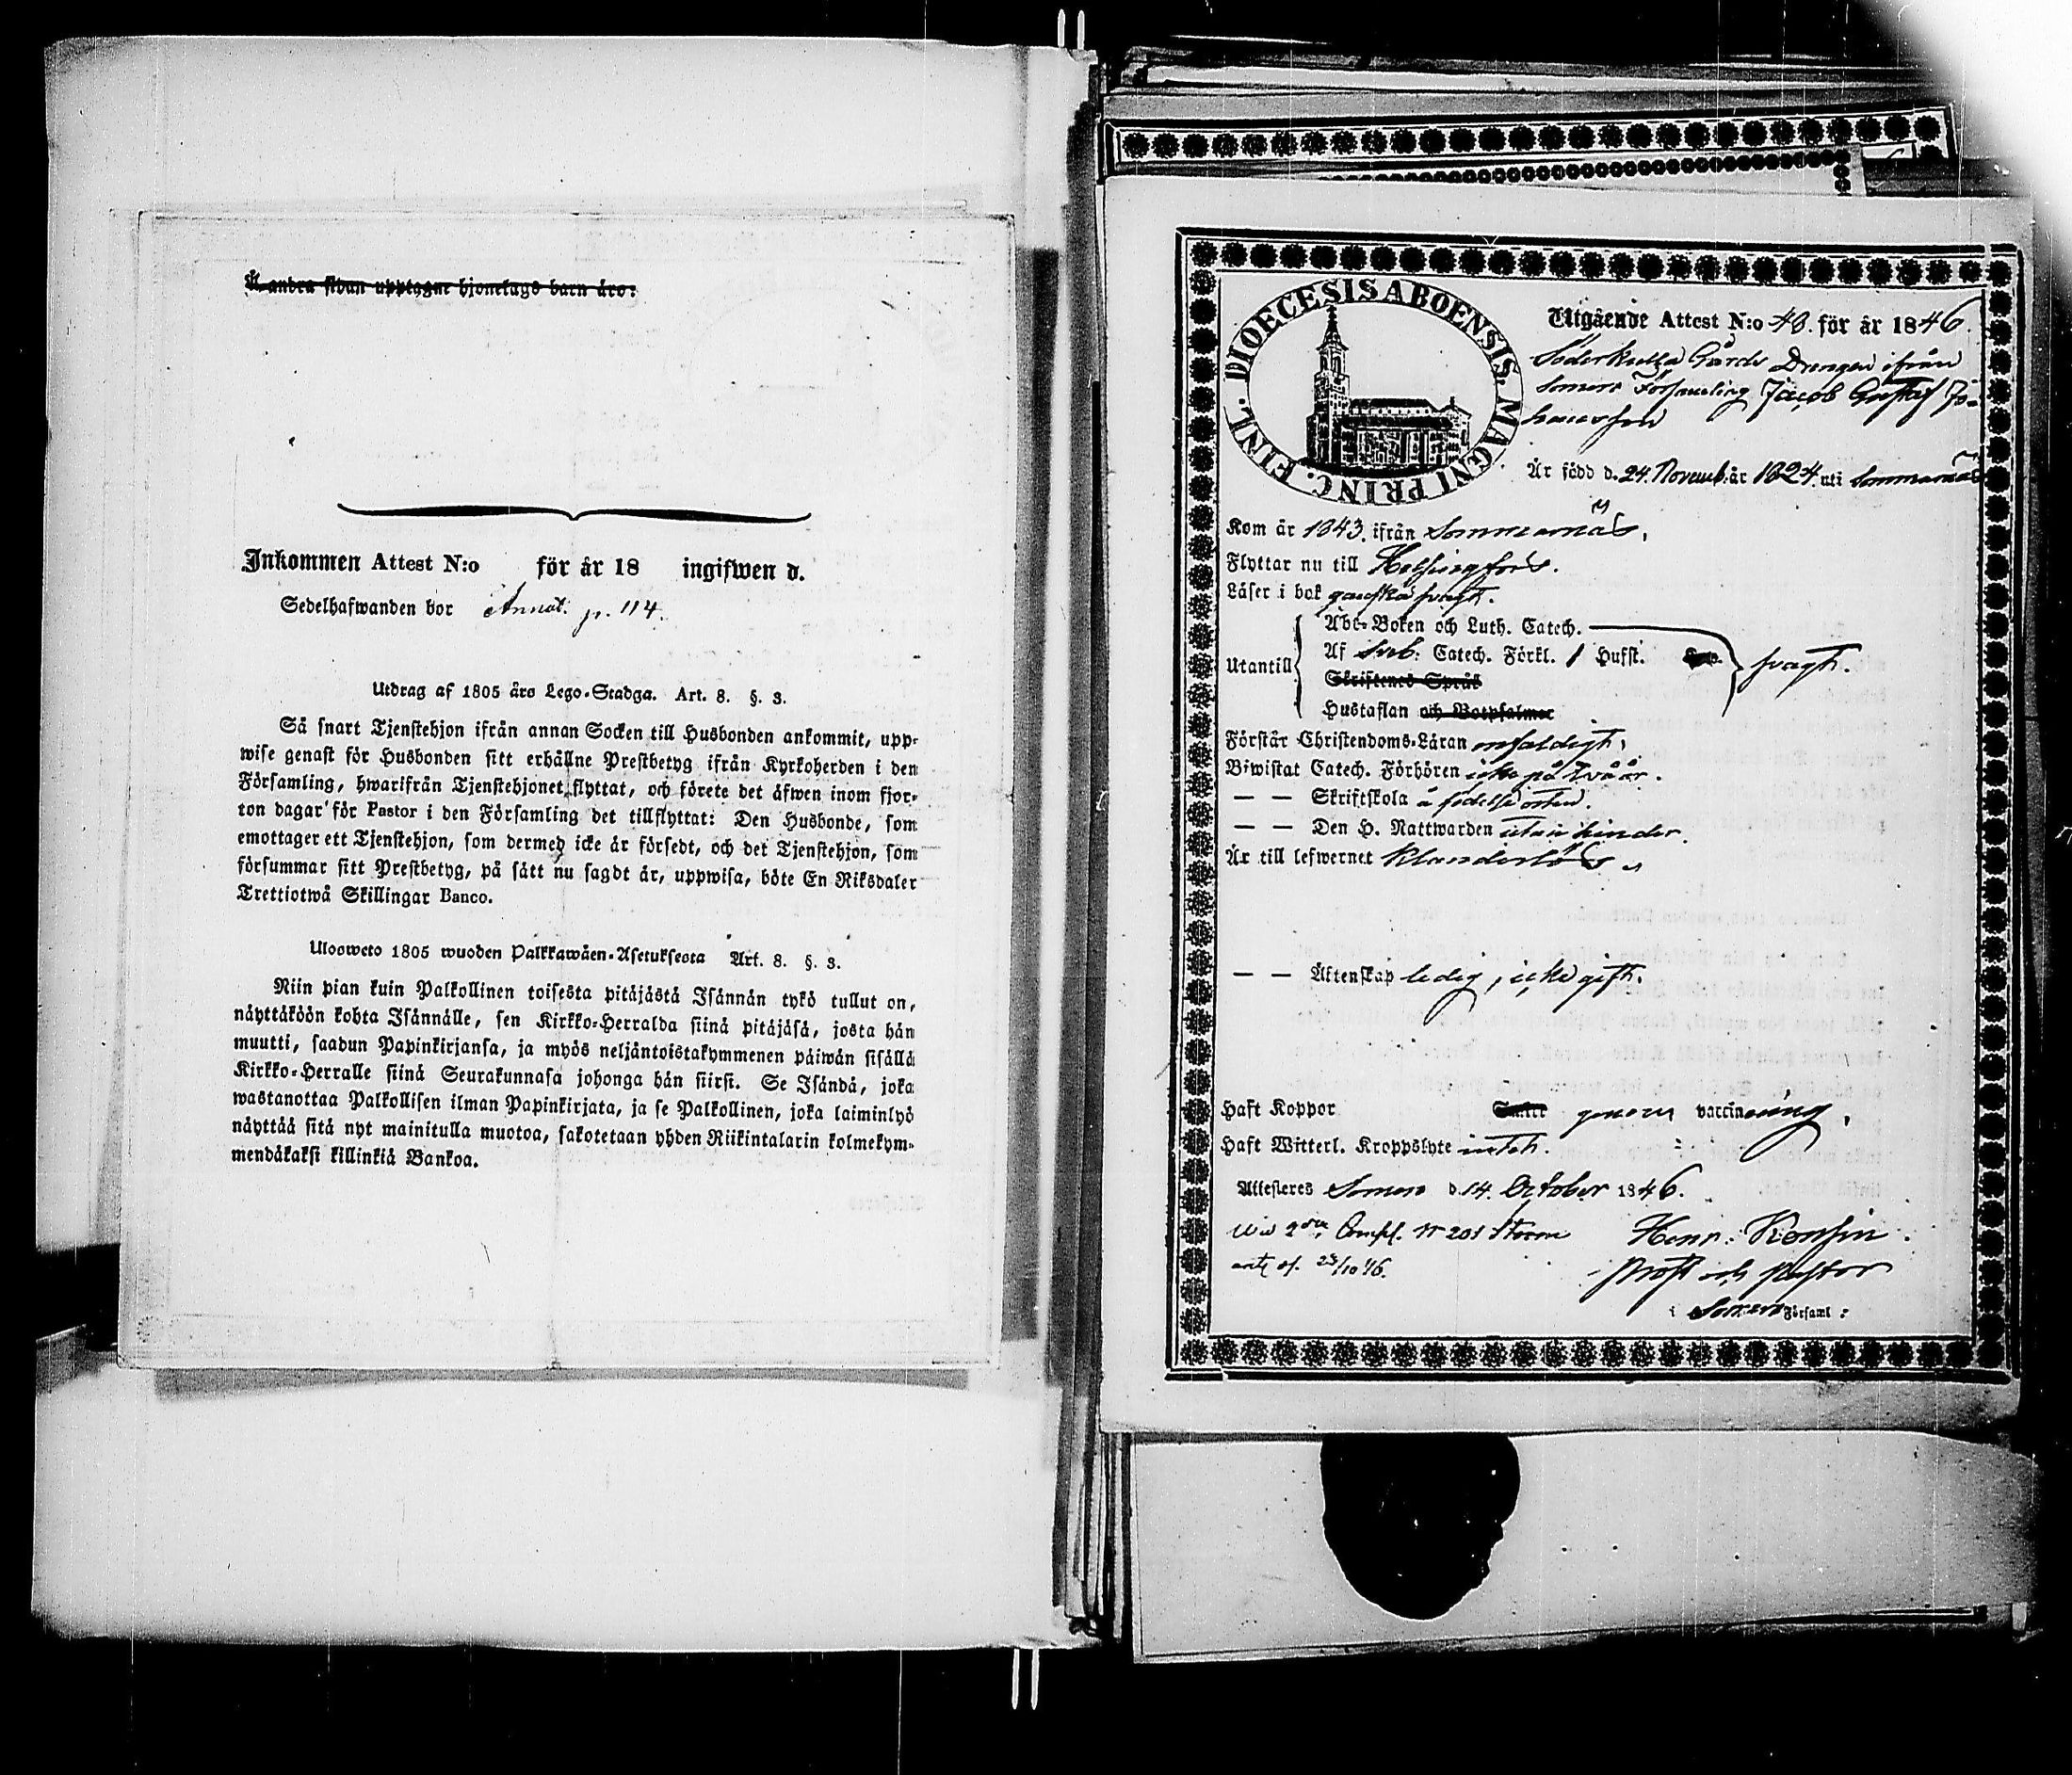 Å andra sidan upptagne hjonelags barn äro:
Inkommen Attest N:o för år 18 ingifwen d.
Sedelhafwanden bor Annot. p. 114.
Utdrag af 1805 års Lego-Stadga. Art. 8. §. 3.
Så snart Tjenstehjon ifrån annan Socken till Husbonden ankommit, upp-
wise genast för Husbonden sitt erhållne Prestbetyg ifrån Kyrkoherden i den
Församling, hwarifrån Tjenstehjonet flyttat, och förete det äfwen inom fjor-
ton dagar för Pastor i den Församling det tillflyttat: Den Husbonde, som
emottager ett Tjenstehjon, som dermed icke är försedt, och det Tjenstehjon, som
försummar sitt Prestbetyg, på sätt nu sagdt är, uppwisa, böte En Riksdaler
Trettiotwå Skillingar Banco.
Ulosweto 1805 wuoden Palkkawäen-Asetuksesta Art. 8. §. 3.
Niin pian kuin Palkollinen toisesta pitäjästä Isännän tykö tullut on,
näyttäköön kohta Isännälle, sen Kirkko-Herralda siinä pitäjäsä, josta hän
muutti, saadun Papinkirjansa, ja myös neljäntoistakymmenen päiwän sisällä
Kirkko-Herralle siinä Seurakunnasa johonga hän siirsi. Se Isändä, joka
wastanottaa Palkollisen ilman Papinkirjata, ja se Palkollinen, joka laiminlyö
näyttää sitä nyt mainitulla muotoa, sakotetaan yhden Riikintalarin kolmekym-
mendäkaksi killinkiä Bankoa.
DIOECESIS ABOENSIS. MAGNI PRINC. FINL.
Utgående Attest N:o 48. för år 1846.
Söderkulla Gårds Drengen ifrån
Somero Församling Jacob Gustaf Jo-
hansson
Är född d. 24. Novemb. år 1824. uti Sommarnäs
Kom år 1843. ifrån Sommarnäs,
Flyttar nu till Helsingfors.
Läser i bok ganska swagt.
Utantill
Abc-Boken och Luth. Catech.
Af Sveb. Catech. Förkl. 1 Hufst. swagt.
Skriftenes Språk
Hustaflan och Botpsalmer
Förstår Christendoms-Läran enfaldigt,
Biwistat Catech. Förhören icke på två år.
— — Skriftskola å födelse orten.
— — Den H. Nattwarden utan hinder.
Är till lefwernet klanderlös
— — Äktenskap ledig, icke gift.
Haft Koppor genom vaccinering,
Haft Witterl. Kroppslyte intet.
Attesteres Somero d. 14. October 1846.
Compl. N 201 Henr: Konsin.
23/10 46. Prost och Pastor
i Somero Församl: